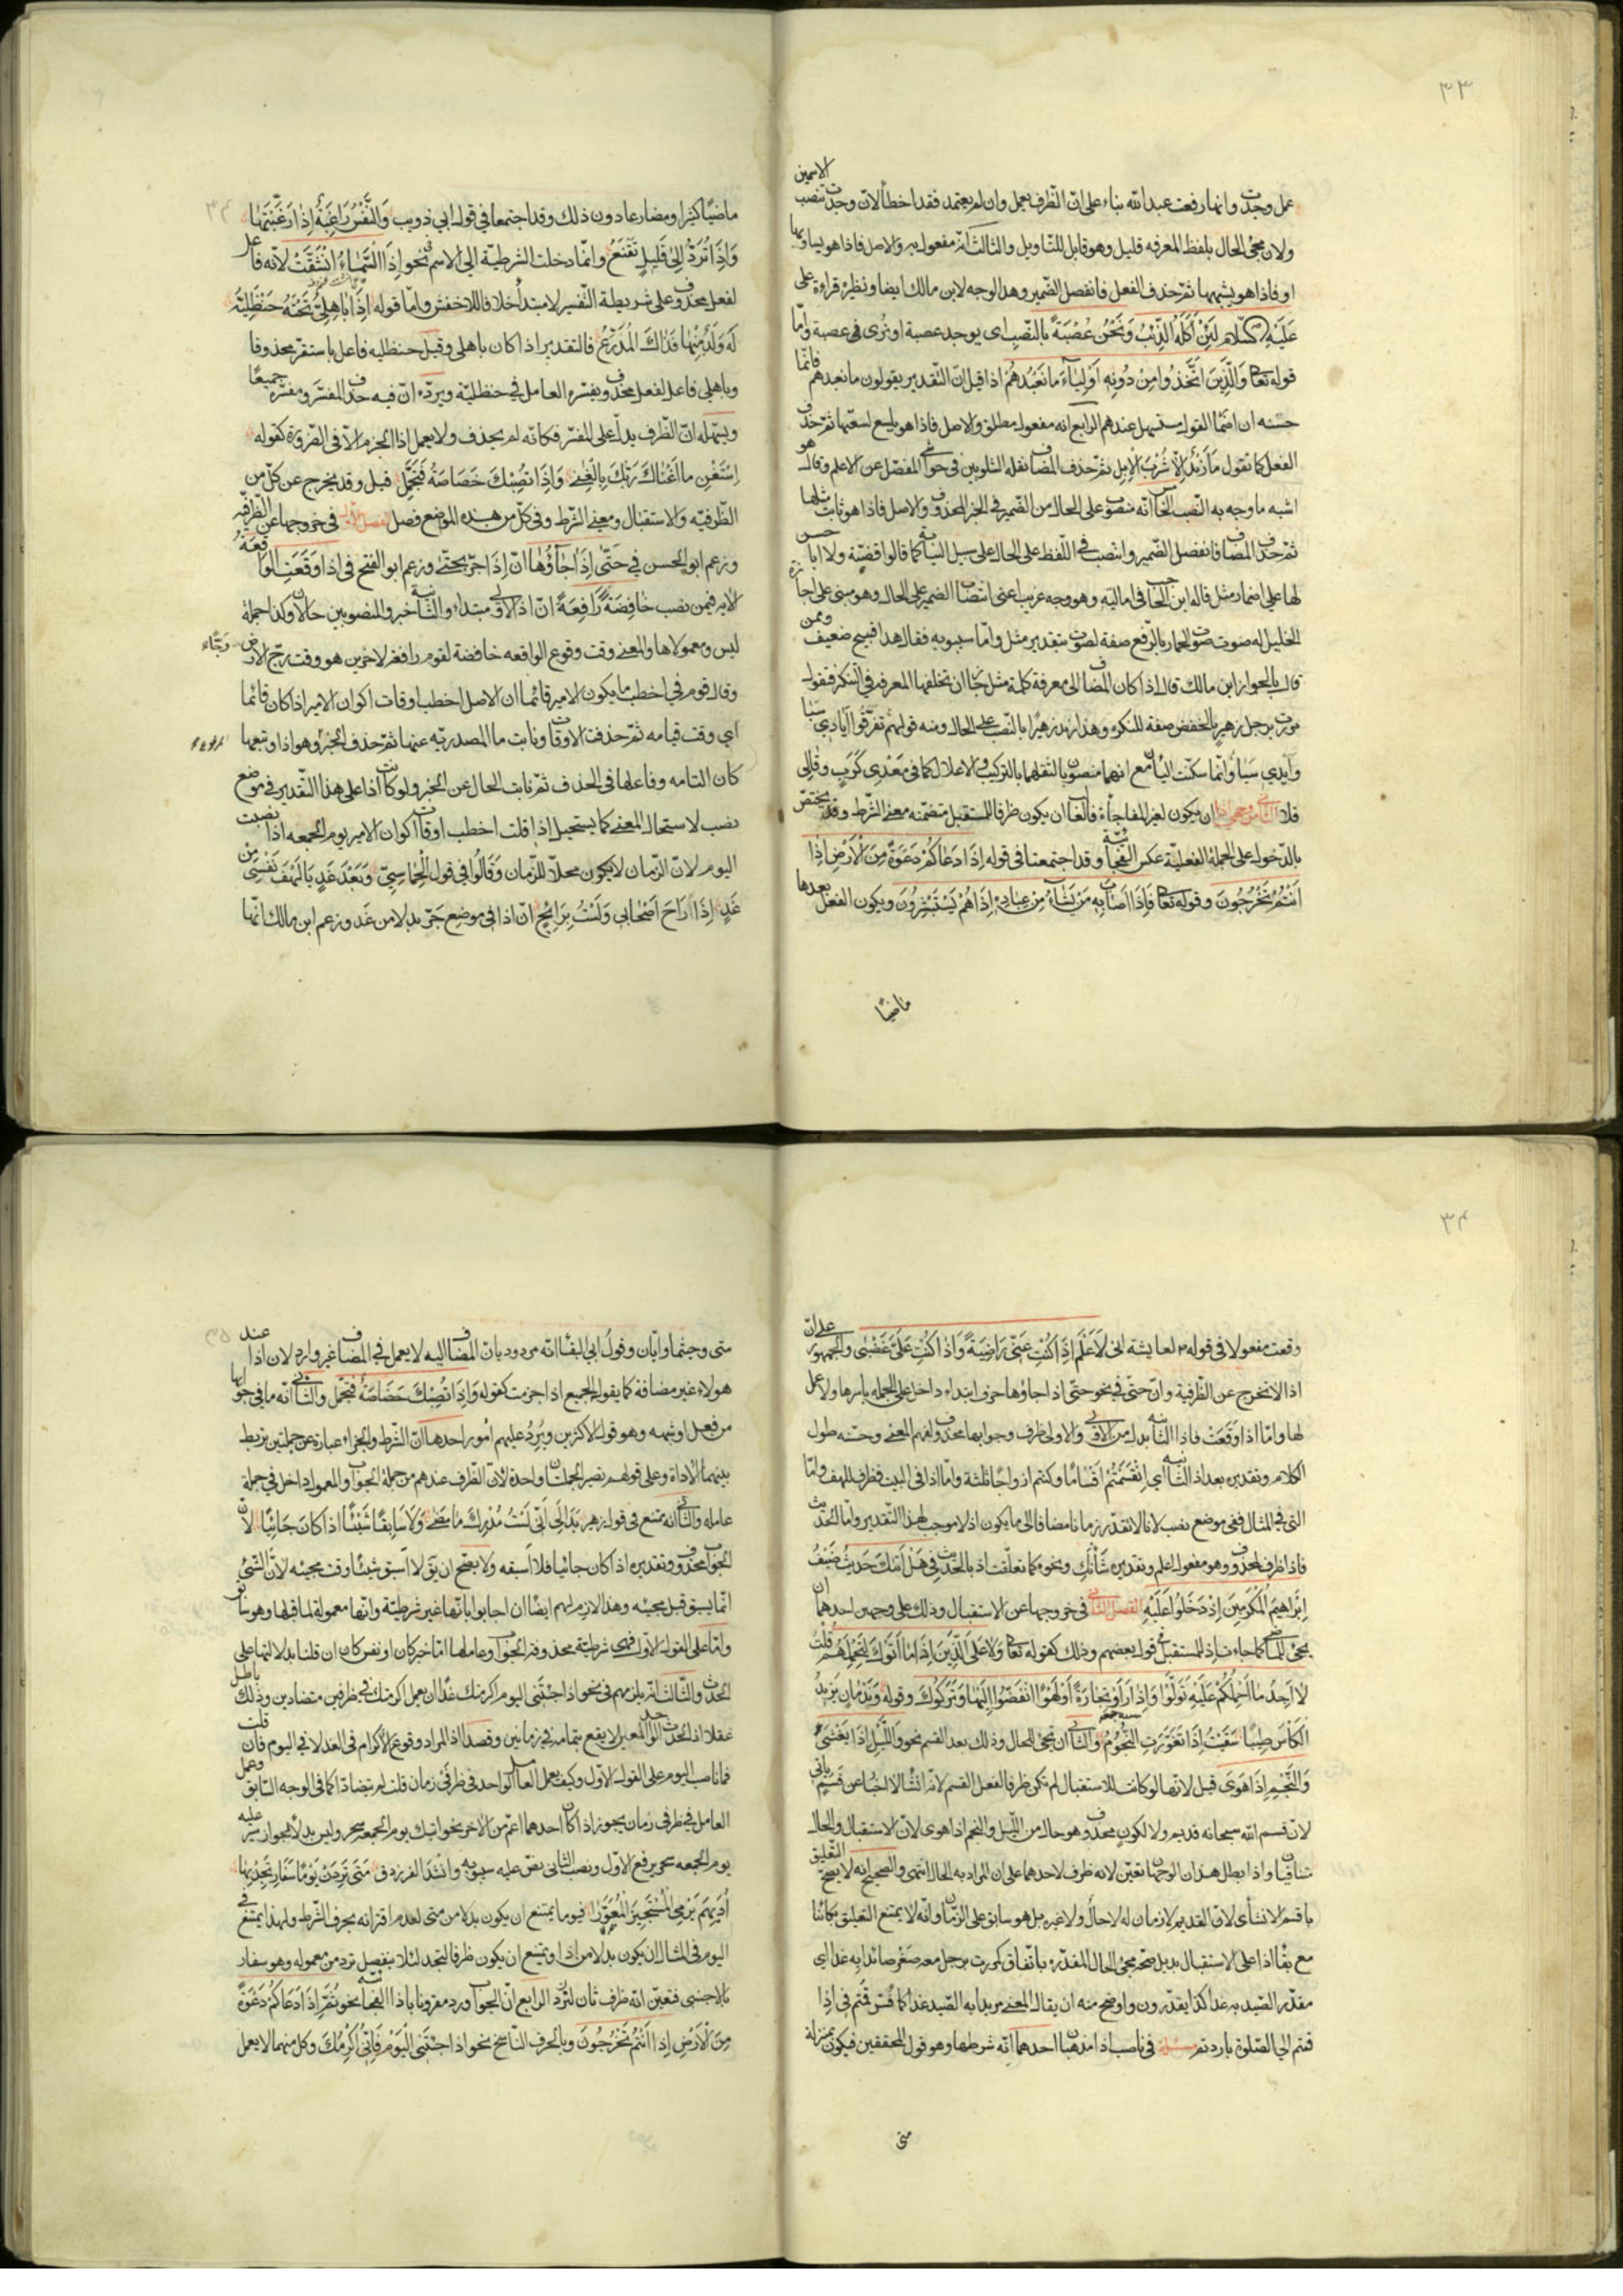 ٣٣
عمل وجدت وانها رفعت عبد الله بناء على ان الظرف يعمل وان لم يعتمد فقد اخطأ لان وجدت تنصب الاسمين
ولان مجئ الحال بلفظ المعرفه قليل وهو قابل للتاويل والثالث انه مفعول به والاصل فاذا هو يساويها
او فاذا هو يشبهها ثم حذف الفعل فانفصل الضمير وهذا الوجه لابن مالك ايضا ونظيره قراءة على
عَلَيْهِ السَّلام لَئِنْ اَكَلَهُ الذِّئْبُ وَنَحْنُ عُصْبَةً بالنّصب اى يوجد عصبة او نُرى فى عصبة وامّا
قوله تعالى وَالَّذِينَ اتَّخَذُوا مِنْ دُونِهِ اَوْلِيَاءَ مَا نَعْبُدُهُمْ اذا قيل ان التقدير يقولون ما نعبدهم فانما
حسّنه ان اضمار القول مستسهل عندهم الرابع انه مفعول مطلق والاصل فاذا هو يلسع لسعتها ثم حذف
الفعل كما تقول مَا زَيْدٌ اِلَّا شُرْبَ الْاِبِلِ ثم حذف المضاف نقله الشلوبين فى حواشي المفصل عن الاعلم وقال هو
اشبه ما وجه به النصب الخامس انه منصوب على الحال من الضمير فى الخبر المحذوف والاصل فاذا هو ثابت مثلها
ثم حذف المضاف فانفصل الضمير وانتصب فى اللفظ على الحال على سبيل النيابة كما قالوا قضيّة ولا ابا حسن
لها على اضمار مثل قاله ابن الحاجب فى اماليه وهو وجه غريب اعنى انتصاب الضمير على الحال وهو مبنى على اجازة
الخليل له صوت صوت الحمار بالرفع صفة لصوت بتقدير مثل وامّا سيبويه فقال هذا قبيح ضعيف وممن
قال بالجواز ابن مالك قال اذا كان المضاف الى معرفة كلمة مثل جاز ان تخلفها المعرفه فى التنكير فتقول
مررت برجل زهير بالخفض صفة للنكره وهذا زيد زهيرًا بالنصب على الحال ومنه قولهم تَفَرَّقُوا اَيَادِي سَبَا
وَاَيْدِي سَبَا وانما سكّنت الياآن مع انهما منصوبان لثقلهما بالتركيب والاعلال كما فى مَعْدِي كَرِبَ وقالى
قلا الثانى من وجهى اذا ان يكون لغير المفاجأة فالغالب ان يكون ظرفا للمستقبل متضمنه معنى الشرط وقد يختص
بالدّخول على الجملة الفعليّة عكس الفجائية وقد اجتمعتا فى قوله اِذَا دَعَاكُمْ دَعْوَةً مِنَ الْاَرْضِ اِذَا
اَنْتُمْ تَخْرُجُونَ وقوله تعالى فَاِذَا اَصَابَ بِهِ مَنْ يَشَاءُ مِنْ عِبَادِهِ اِذَا هُمْ يَسْتَبْشِرُونَ ويكون الفعل بعدها
ماضيًا
٣٤
ماضيًا كثيرا ومضارعا دون ذلك وقد اجتمعا فى قول ابى ذويب وَالنَّفْسُ رَاغِبَةٌ اِذَا رَغَّبْتَهَا
وَاِذَا تُرَدُّ اِلٰى قَلِيلٍ تَقْنَعُ وانّما دخلت الشرطيّة الى الاسم فى نحو اِذَا السَّمَاءُ انْشَقَّتْ لانّه فاعل
لفعل محذوف على شريطة التفسير لا مبتدأ خلافا للاخفش وامّا قوله اِذَا بَاهِلِيٌّ تَحْتَهُ حَنْظَلِيَّةٌ
لَهُ وَلَدٌ مِنْهَا فَذَاكَ الْمُذَرَّعُ فالتقدير اذا كان باهلى وقيل حنظليه فاعل باستقر محذوفا
وباهلى فاعل لفعل محذوف يفسّره العامل فى حنظليّة ويردّه انّ فيه حذف المفسّر ومفسّره جميعًا
ويسهّله انّ الظرف يدلّ على المفسّر فكانّه لم يحذف ولا يعمل اذا الجزم الّا فى الضرورة كقوله
اِسْتَغْنِ مَا اَغْنَاكَ رَبُّكَ بِالْغِنٰى وَاِذَا تُصِبْكَ خَصَاصَةٌ فَتَجَمَّلِ قيل وقد يخرج عن كلّ من
الظرفيّه والاستقبال ومعنى الشرط وفى كلّ من هذه المواضع فصل الفصل الاول فى خروجها عن الظرفيّه
وزعم ابو الحسن فى حَتّٰى اِذَا جَاؤُهَا انّ اِذَا جرّ بحتّى وزعم ابو الفتح فى اذا وَقَعَتِ الْوَاقِعَةُ
الايه فيمن نصب خَافِضَةً رَافِعَةً انّ اذا الاولى مبتداء والثانية خبر والمنصوبين حالان وكذا جملة
ليس ومعمولاها والمعنى وقت وقوع الواقعه خافضة لقوم رافعة لاخرين هو وقت رجّ الارض رجّاء
وقال قوم فى اخطب ما يكون الامير قائما ان الاصل اخطب اوقات اكوان الامير اذا كان قائما
اي وقت قيامه ثمّ حذفت الاوقات ونابت ما المصدريّه عنها ثم حذف الخبر المرفوع وهو اذا وتبعها
كان التامه وفاعلها فى الحذف ثمّ نابت الحال عن الخبر ولو كانت اذا على هذا التقدير فى موضع
نصب لاستحال المعنى كما يستحيل اذا قلت اخطب اوقات اكوان الامير يوم الجمعه اذا نصبت
اليوم لانّ الزّمان لا يكون محلّا للزّمان وَقَالُوا فى قول الْحَمَاسِيّ وَبَعْدَ غَدٍ يَا لَهْفَ نَفْسِي مِنْ
غَدٍ اِذَا رَاحَ اَصْحَابِي وَلَسْتُ بِرَائِحٍ انّ اذا فى موضع جرّ بدلا من غَد وزعم ابن مالك انّها
٣٤
وقعت مفعولا فى قوله لعايشة انى لَاَعْلَمُ اِذَا كُنْتِ عَنِّي رَاضِيَةً وَاِذَا كُنْتِ عَلَيَّ غَضْبٰى والجمهور على انّ
اذا لا تخرج عن الظّرفية وانّ حتّى فى نحو حتّى اذا جاؤها حرف ابتداء داخل على الجمله باسرها ولا عمل
لها وامّا اذا وَقَعَتْ فاذا الثانية بدل من الاولى والاولى ظرف وجوابها محذوف لفهم المعنى وحسّنه طول
الكلام وتقديره بعد اذا الثانية أي اِنْقَسَمْتُمْ اَقْسَامًا وكنتم ازواجًا ثلثة وامّا اذا فى البيت فظرف للهف وامّا
التى فى المثال ففى موضع نصب لانا لا نقدّر زمانا مضافا الى ما يكون اذ لا موجب لهذا التقدير وامّا الحديث
فاذا ظرف لمحذوف وهو مفعول اعلم وتقديره شَأْنَكِ ونحوه كما تعلّقت اذ بالحديث فى هَلْ اَتٰيكَ حَدِيثُ ضَيْفِ
اِبْرَاهِيمَ الْمُكْرَمِينَ اِذْ دَخَلُوا عَلَيْهِ الفصل الثانى فى خروجها عن الاستقبال وذلك على وجهين احدهما ان
يجئ للماضى كما جاءت اذ للمستقبل فى قول بعضهم وذلك كقوله تعالى وَلَا عَلَى الَّذِينَ اِذَا مَا اَتَوْكَ لِتَحْمِلَهُمْ قُلْتَ
لَا اَجِدُ مَا اَحْمِلُكُمْ عَلَيْهِ تَوَلَّوْا وَاِذَا رَاَوْا تِجَارَةً اَوْ لَهْوًا انْفَضُّوا اِلَيْهَا وَتَرَكُوكَ وقوله وَنَدْمَانٍ يَزِيدُ
الْكَاْسَ طِيبًا سَقَيْتُ اِذَا تَغَوَّرَتِ النُّجُومُ والثانى ان تجئ للحال وذلك بعد القسم نحو وَاللَّيْلِ اِذَا يَغْشٰى
وَالنَّجْمِ اِذَا هَوٰى قيل لانّها لو كانت للاستقبال لم تكن ظرفا لفعل القسم لانّه انشاء لا اخبار عن قسم ياتى
لانّ قسم اللّه سبحانه قديم ولا لكون محذوف وهو حال من اللّيل والنجم اذا هوى لانّ الاستقبال والحال
متنافيان واذا بطل هذان الوجهان تعيّن لانه ظرف لاحدهما على ان المراد به الحال انتهى والصحيح انه لا يصحّ التعليق
باقسم الانشائى لانّ القديم لا زمان له لا حال ولا غيره بل هو سابق على الزّمان وانّه لا يمتنع التعليق بكائنا
مع بقاء اذا على الاستقبال بدليل صحّة مجئ الحال المقدّره باتّفاق كمررت برجل معه صَقْر صائدا به غدا اى
مقدّرا الصّيد به غدا كذا يقدّرون واوضح منه ان يقال المعنى مريدا به الصّيد غدا كما فُسّر قُمْتُم فى اِذا
قمتم الى الصّلوة باردتم مسئلة فى ناصب اذا مذهبان احدهما انّه شرطها وهو قول المحققين فيكون بمنزلة
متى
٣٥
متى وحيثما وايّان وقول ابى البقاء انّه مردود بان المضاف اليه لا يعمل فى المضاف غير وارد لان اذا عند
هولاء غير مضافة كما يقوله الجميع اذا جزمت كقوله وَاِذَا تُصِبْكَ خَصَاصَةٌ فَتَجَمَّلِ والثانى انّه ما فى جوابها
من فعل او شبهه وهو قول الاكثرين ويُرَدّ عليهم أمور احدها انّ الشرط والجزاء عبارة عن جملتين يربط
بينهما الاداة وعلى قولهم تصير الجملتان واحدة لانّ الظّرف عندهم من جملة الجواب والمعمول داخل فى جملة
عامله والثانى انه ممتنع فى قول زهير بَدَا لِيَ اَنّي لَسْتُ مُدْرِكَ مَا مَضٰى وَلَا سَابِقًا شَيْئًا اذا كَانَ جَائِيًا لانّ
الجواب محذوف وتقديره اذا كان جائيا فلا اسبقه ولا يصحّ ان يق لا اسبق شيئا وقت مجيئه لانّ الشّئ
انّما يسبق قبل مجيئه وهذا لازم لهم ايضًا ان اجابوا بانّها غير شرطيّة وانّها معمولة لما قبلها وهو سابق
وامّا على القول الاوّل فهى شرطيّة محذوفة الجواب وعاملها امّا خبر كان او نفس كان ان قلنا بدلالتها على
الحدث والثالث انّه يلزمهم فى نحو اذا جئتَنى اليوم اكرمتك غدًا ان يعمل اكرمتك فى ظرفين متضادين وذلك باطل
عقلا اذ الحدث الواحد المعين لا يقع بتمامه فى زمانين وقصدا اذ المراد وقوع الاكرام فى الغد لا فى اليوم فان قلت
فما ناصب اليوم على القول الاوّل وكيف يعمل العامل الواحد فى ظرفى زمان قلت لم يتضادّا كما فى الوجه السّابق وعمل
العامل فى ظرفى زمان يجوز اذا كان احدهما اعمّ من الآخر نحو اتيك يوم الجمعة سحر وليس بدلًا لجواز سير عليه
يوم الجمعه سحر برفع الاوّل ونصب الثانى نصّ عليه سيبويه وانشد الفرزدق مَتٰى تَرِدَنْ يَوْمًا سَفَارِ تَجِدْ بِهَا
اُدَيْهِمَ يَرْمِي الْمُسْتَجِيزَ الْمُعَوَّرَا فيوما يمتنع ان يكون بدلا من متى لعدم اقترانه بحرف الشّرط ولهذا يمتنع فى
اليوم فى المثال ان يكون بدلا من اذا ويمتنع ان يكون ظرفا لتجد لئلا ينفصل ترد من معموله وهو سفار
بالاجنبى فتعيّن انّه ظرف ثان لترد الرابع انّ الجواب ورد مقرونا باذا الفجائية نحو ثُمَّ اِذَا دَعَاكُمْ دَعْوَةً
مِنَ الْاَرْضِ اِذَا اَنْتُمْ تَخْرُجُونَ وبالحرف النّاسخ نحو اذا جِئْتَنِي الْيَوْمَ فَاِنّي اُكْرِمُكَ وكلّ منهما لا يعمل